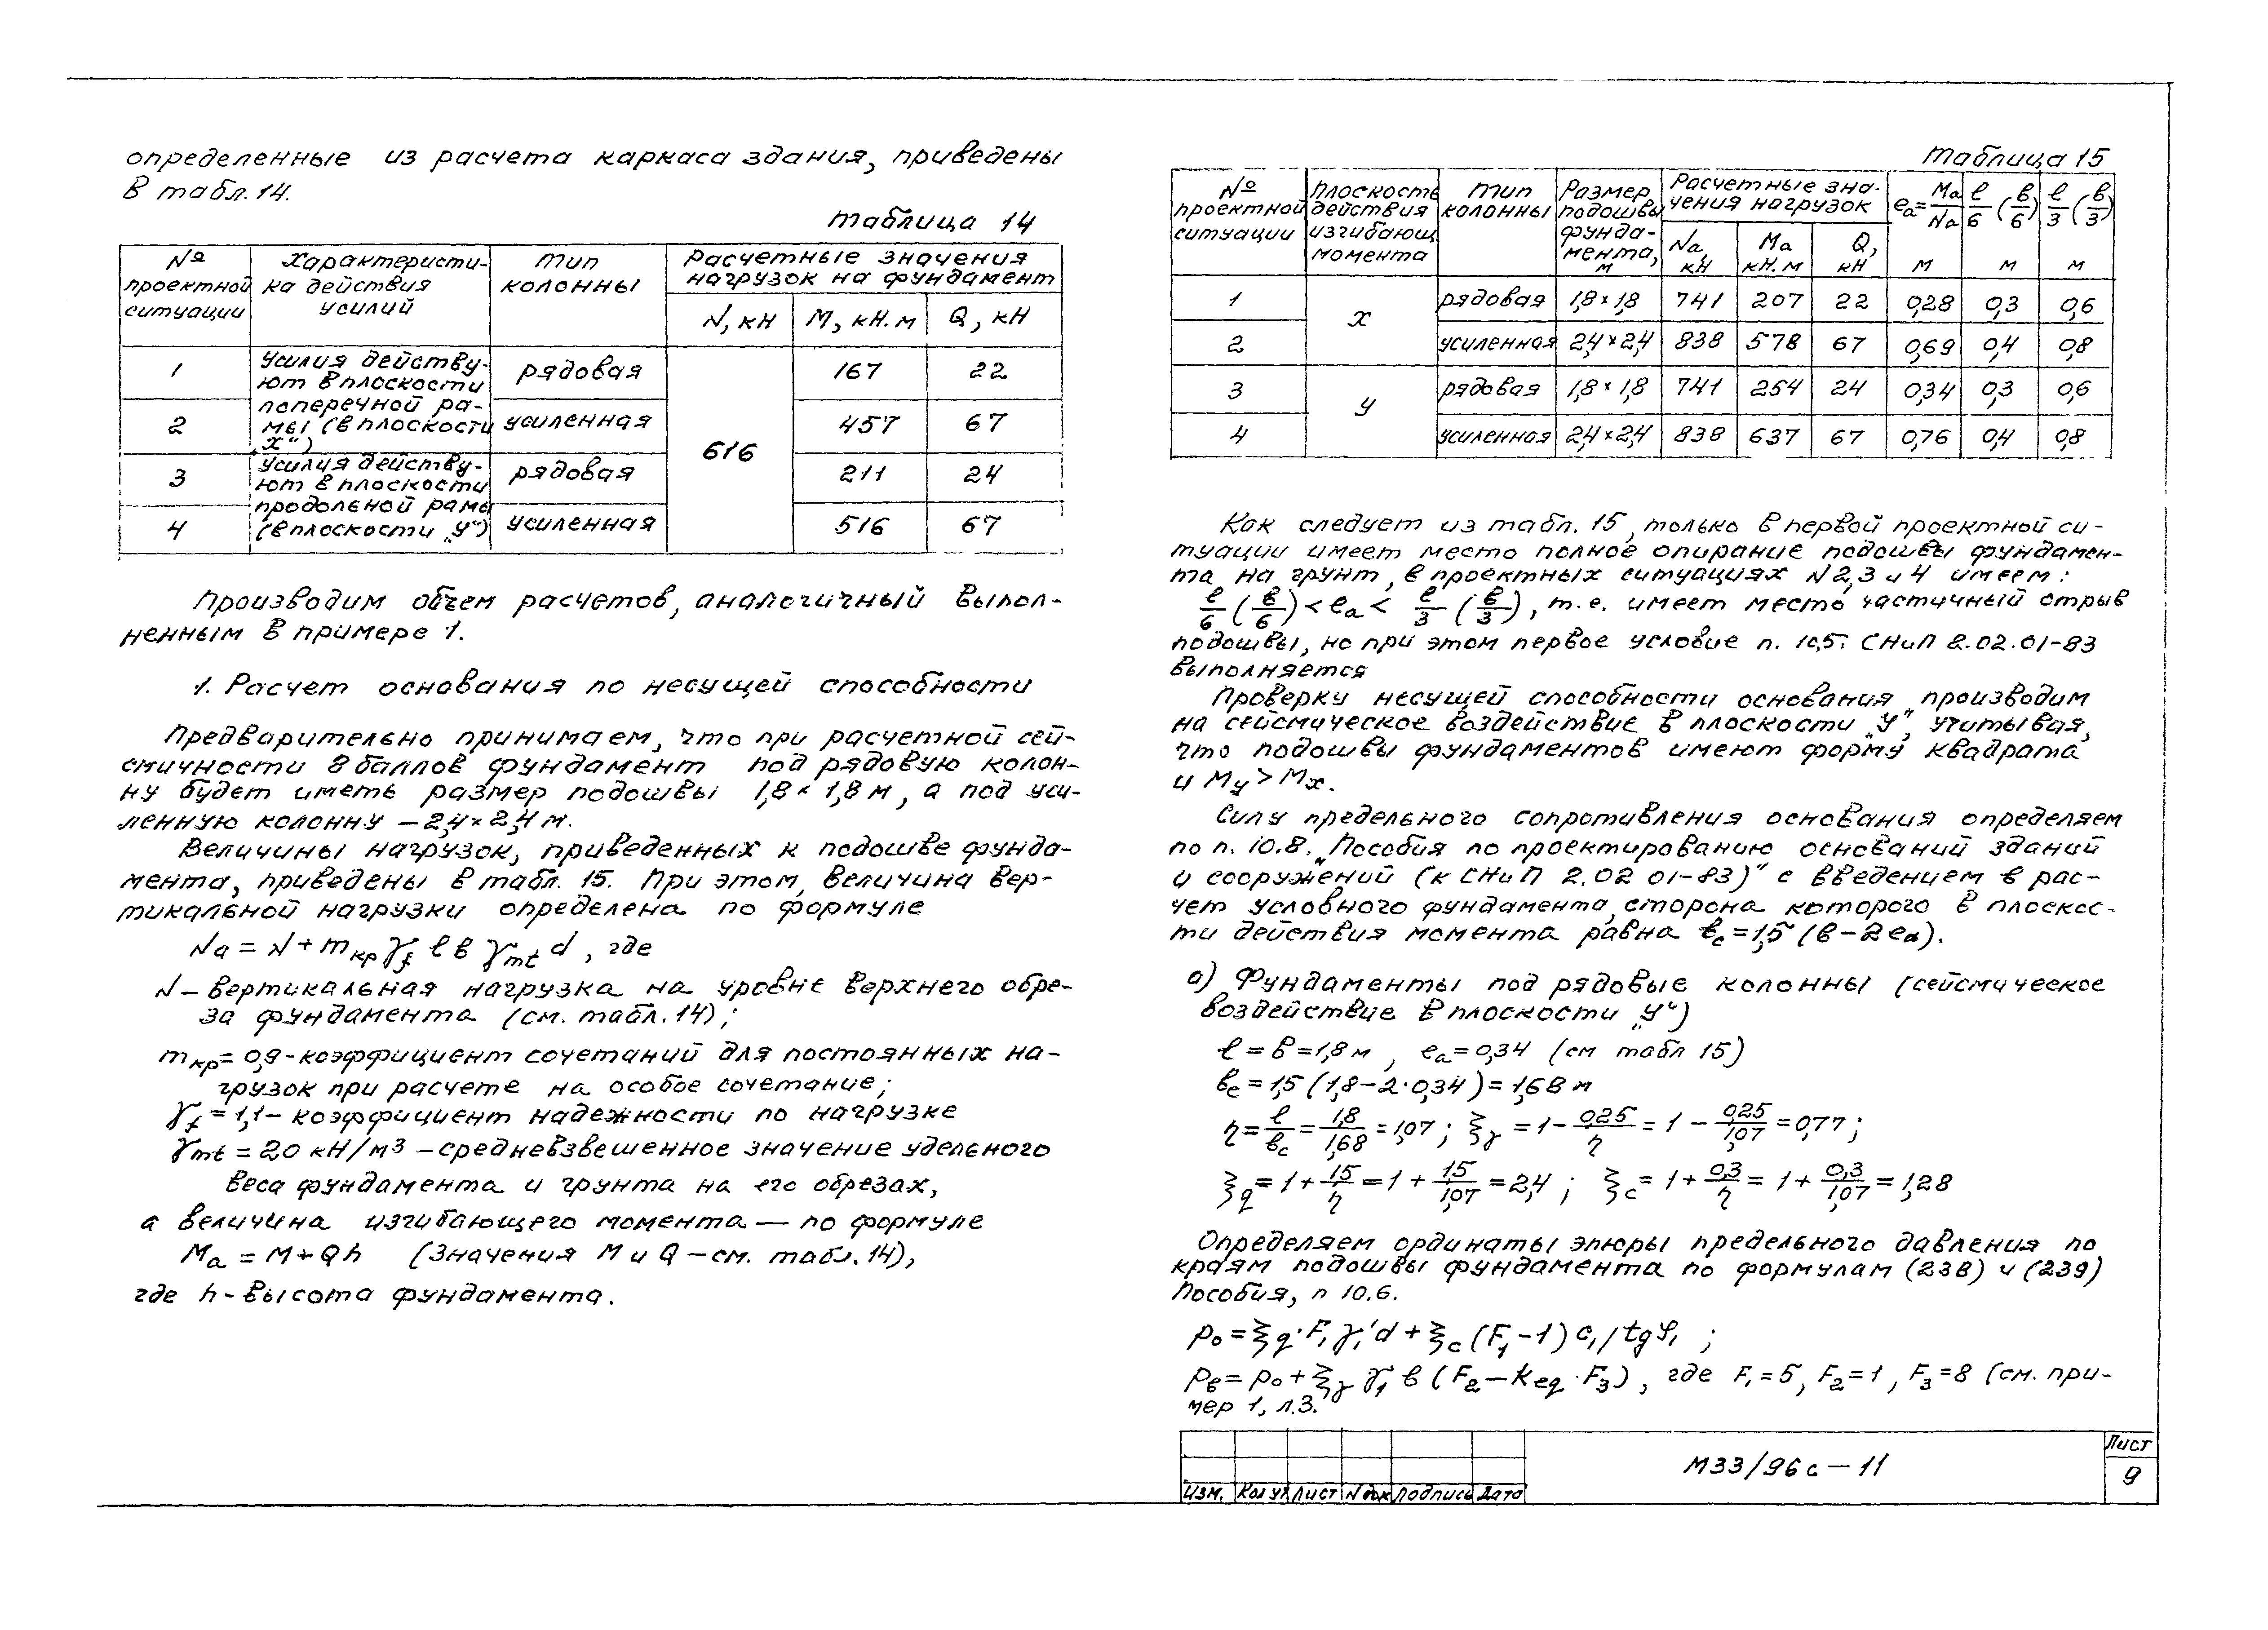 определенные из расчета каркаса здания, приведены
в табл. 14.
Таблица 14
№ проектной ситуации | Характеристика действия усилий | Тип колонны | Расчетные значения нагрузок на фундамент
N, кН | М, кН.м | Q, кН
1 | Усилия действуют в плоскости поперечной рамы (в плоскости „Х“) | рядовая | 616 | 167 | 22
2 | усиленная | 457 | 67
3 | Усилия действуют в плоскости продольной рамы (в плоскости „У“) | рядовая | 211 | 24
4 | усиленная | 516 | 67
Производим объем расчетов, аналогичный выпол-
ненным в примере 1.
1. Расчет основания по несущей способности
Предварительно принимаем, что при расчетной сей-
смичности 8 баллов фундамент под рядовую колон-
ну будет иметь размер подошвы 1,8 × 1,8 м, а под уси-
ленную колонну – 2,4 × 2,4 м.
Величины нагрузок, приведенных к подошве фунда-
мента, приведены в табл. 15. При этом, величина вер-
тикальной нагрузки определена по формуле
Nа = N + mкр γf ℓ в γmt d , где
N – вертикальная нагрузка на уровне верхнего обре-
за фундамента (см. табл. 14);
mкр = 0,9 - коэффициент сочетаний для постоянных на-
грузок при расчете на особое сочетание;
γf = 1,1 – коэффициент надежности по нагрузке
γmt = 20 кН/м³ – средневзвешенное значение удельного
веса фундамента и грунта на его обрезах,
а величина изгибающего момента — по формуле
Mа = M + Qh (Значения М и Q – см. табл. 14),
где h - высота фундамента.
Таблица 15
№ проектной ситуации | Плоскость действия изгибающ. момента | Тип колонны | Размер подошвы фундамента, м | Расчетные значения нагрузок | eа = Ма/Nа м | ℓ/6 (в/6) м | ℓ/3 (в/3) м
Nа, кН | Ма кН.м | Q, кН
1 | Х | рядовая | 1,8 × 1,8 | 741 | 207 | 22 | 0,28 | 0,3 | 0,6
2 | усиленная | 2,4 × 2,4 | 838 | 578 | 67 | 0,69 | 0,4 | 0,8
3 | У | рядовая | 1,8 × 1,8 | 741 | 254 | 24 | 0,34 | 0,3 | 0,6
4 | усиленная | 2,4 × 2,4 | 838 | 637 | 67 | 0,76 | 0,4 | 0,8
Как следует из табл. 15, только в первой проектной си-
туации имеет место полное опирание подошвы фундамен-
та на грунт, в проектных ситуациях N 2, 3 и 4 имеем:
ℓ/6 (в/6) < eа < ℓ/3 (в/3), т.е. имеет место частичный отрыв
подошвы, но при этом первое условие п. 10,5. СНиП 2.02.01-83
выполняется
Проверку несущей способности основания производим
на сейсмическое воздействие в плоскости „У“, учитывая,
что подошвы фундаментов имеют форму квадрата
и Mу > Mх.
Силу предельного сопротивления основания определяем
по п. 10.8. „Пособия по проектированию оснований зданий
и сооружений (к СНиП 2.02 01-83)“ с введением в рас-
чет условного фундамента, сторона которого в плоскос-
ти действия момента равна вс = 1,5 (в – 2 eа).
а) Фундаменты под рядовые колонны (сейсмическое
воздействие в плоскости „У“)
ℓ = в = 1,8 м , eа = 0,34 (см табл 15)
вс = 1,5 (1,8 – 2 · 0,34) = 1,68 м
η = ℓ/вс = 1,8/1,68 = 1,07 ; ξγ = 1 – 0,25/η = 1 – 0,25/1,07 = 0,77 ;
ξq = 1 + 1,5/η = 1 + 1,5/1,07 = 2,4 ; ξс = 1 + 0,3/η = 1 + 0,3/1,07 = 1,28
Определяем ординаты эпюры предельного давления по
краям подошвы фундамента по формулам (238) и (239)
Пособия, п 10.6.
p₀ = ξq · F₁ γ₁′ d + ξс (F₁ – 1) c₁ / tg φ₁ ;
pв = p₀ + ξγ γ₁ в (F₂ – keq · F₃) , где F₁ = 5, F₂ = 1 , F₃ = 8 (см. при-
мер 1, л.3.
Изм. | Кол уч | Лист | N док | Подпись | Дата
М33/96с – 11
Лист
9